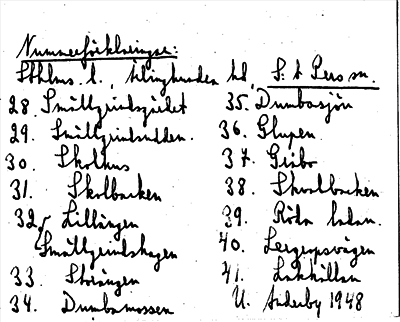 Nummerförklaringar:
Sthlms l., Ärlinghundra hd, S:t Pers sn.
28. Smältgrindsgärdet
29. Smältgrindsudden.
30. Skolhus
31. Skolbacken
32. Lillängen
Smältgrindshagen
33. Storängen
34. Dumbomossen
35. Dumbosjön
36. Glupen
37. Gribo
38. Skvalbacken
39. Röda ladan.
40. Lergropsvägen
41. Lukkällan
U. Anderby 1948